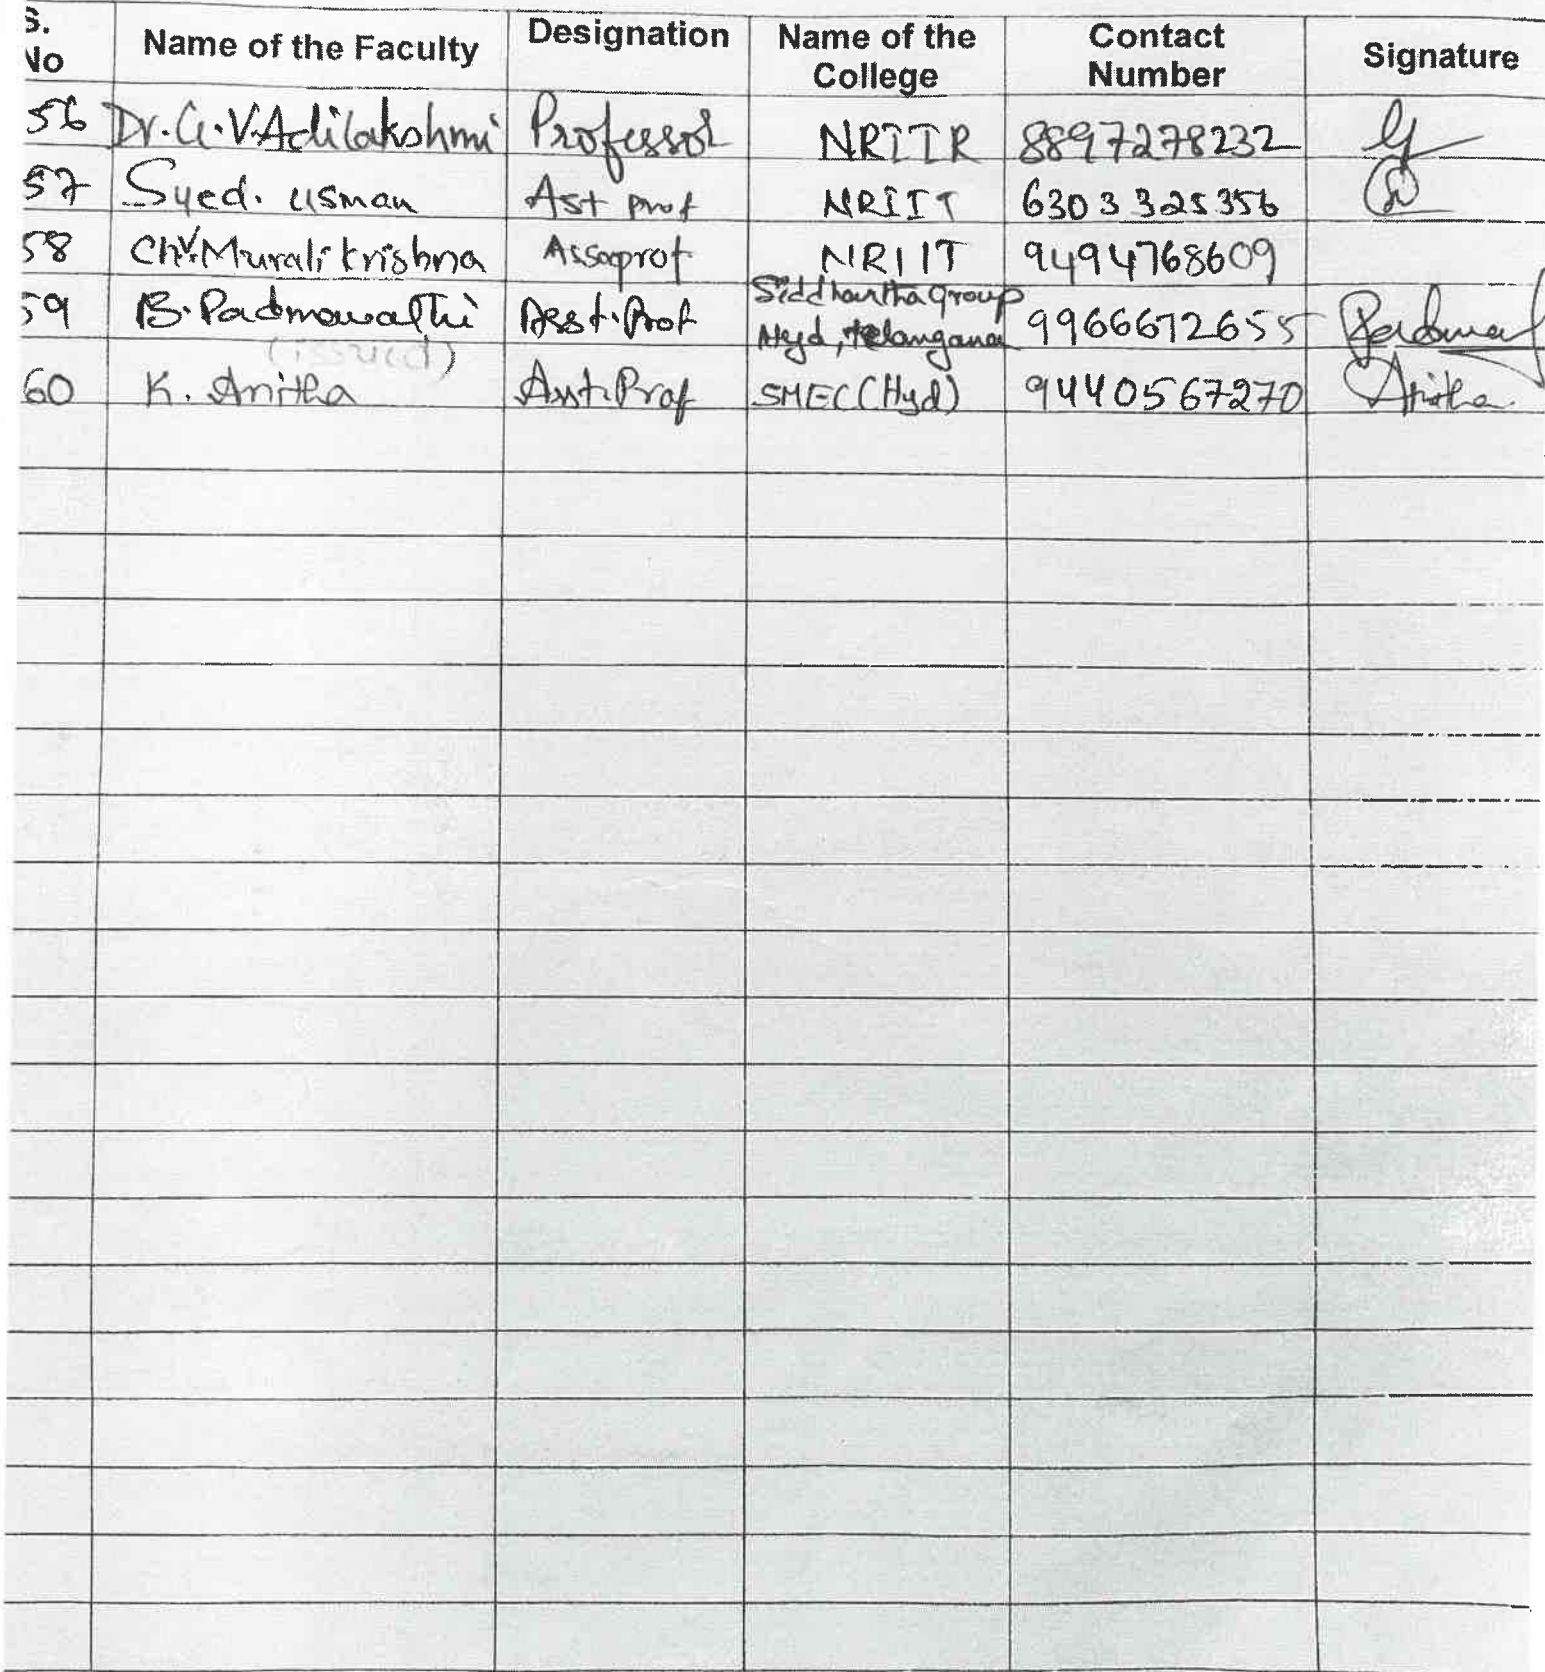 S. No Name of the Faculty Designation Name of the College Contact Number Signature
56 Dr. G.V.Adilakshmi Professor NRIIR 8897278232
57 Syed. usman Ast prof NRIIT 6303325356
58 Ch.V.Murali krishna Assoprof NRIIT 9494768609
59 B. Padmavathi Asst. Prof Siddhartha Group Hyd, telangana 9966672655 Padma
(issued)
60 K. Anitha Asst. Prof SMEC (Hyd) 9440567270 Anitha